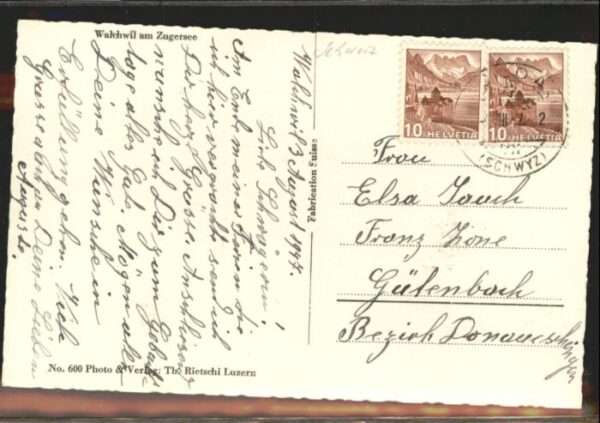 Walchwil am Zugersee
Schweiz
Walchwil 3 August 1948.
Liebe Schwägerin!
Am Ende meiner Ferien die
ich hier verbracht send ich
Dir herzl. Grüsse. Anschliessend
wünsche ich Dir zum Geburts-
tage alles Gute. Mögen alle
Deine Wünsche in
Erfüllung gehen. Viele
Grüsse an Deine Lieben
Auguste.
Fabrication Suisse
10 HELVETIA
10 HELVETIA
(SCHWYZ)
Frau
Elsa Jauch
Franz Zone
Gütenbach
Bezirk Donaueschingen
No. 600 Photo & Verlag: Th. Rietschi Luzern